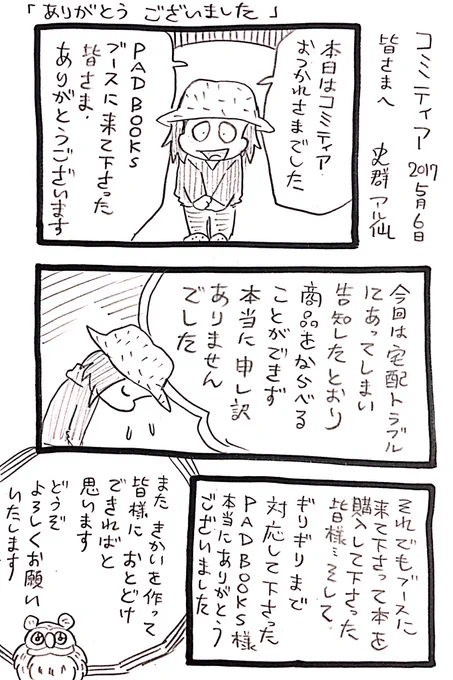 「ありがとう ございました」
コミティア 2017 5月6日
皆さまへ 史群アル仙
本日はコミティア
おつかれさまでした
PADBOOKS
ブースに来て下さった
皆さま、
ありがとうございます
今回は宅配トラブル
にあってしまい
告知したとおり
商品をならべる
ことができず
本当に申し訳
ありません
でした
それでもブースに
来て下さって本を
購入して下さった
皆様…そして
ギリギリまで
対応して下さった
PADBOOKS様
本当にありがとう
ございました
また きかいを作って
皆様に おとどけ
できればと
思います
どうぞ
よろしくお願い
いたします